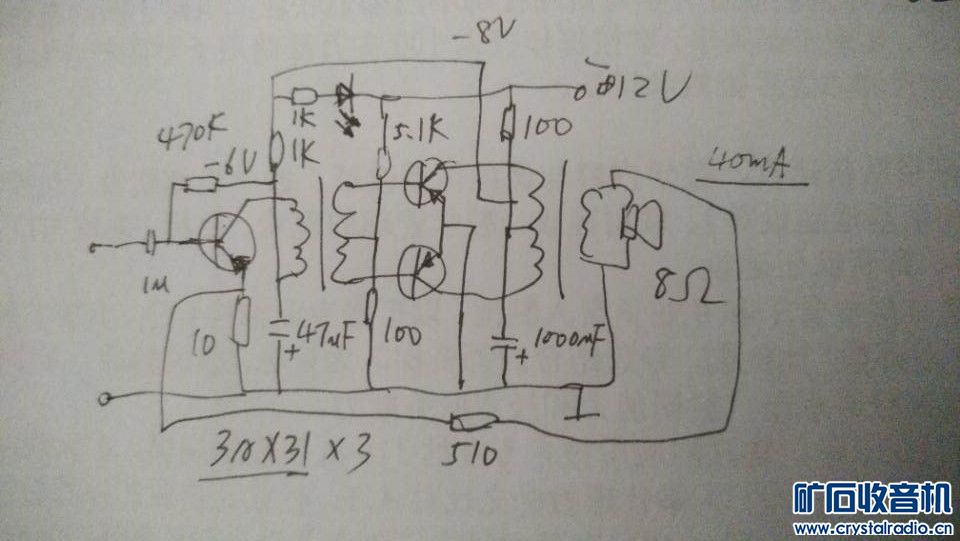 -8V
12V
1K
470K
-6V
1K
5.1K
100
40mA
1M
8Ω
10
47uF
100
1000mF
+
+
510
3AX31 x 3
矿石收音机
www.crystalradio.cn